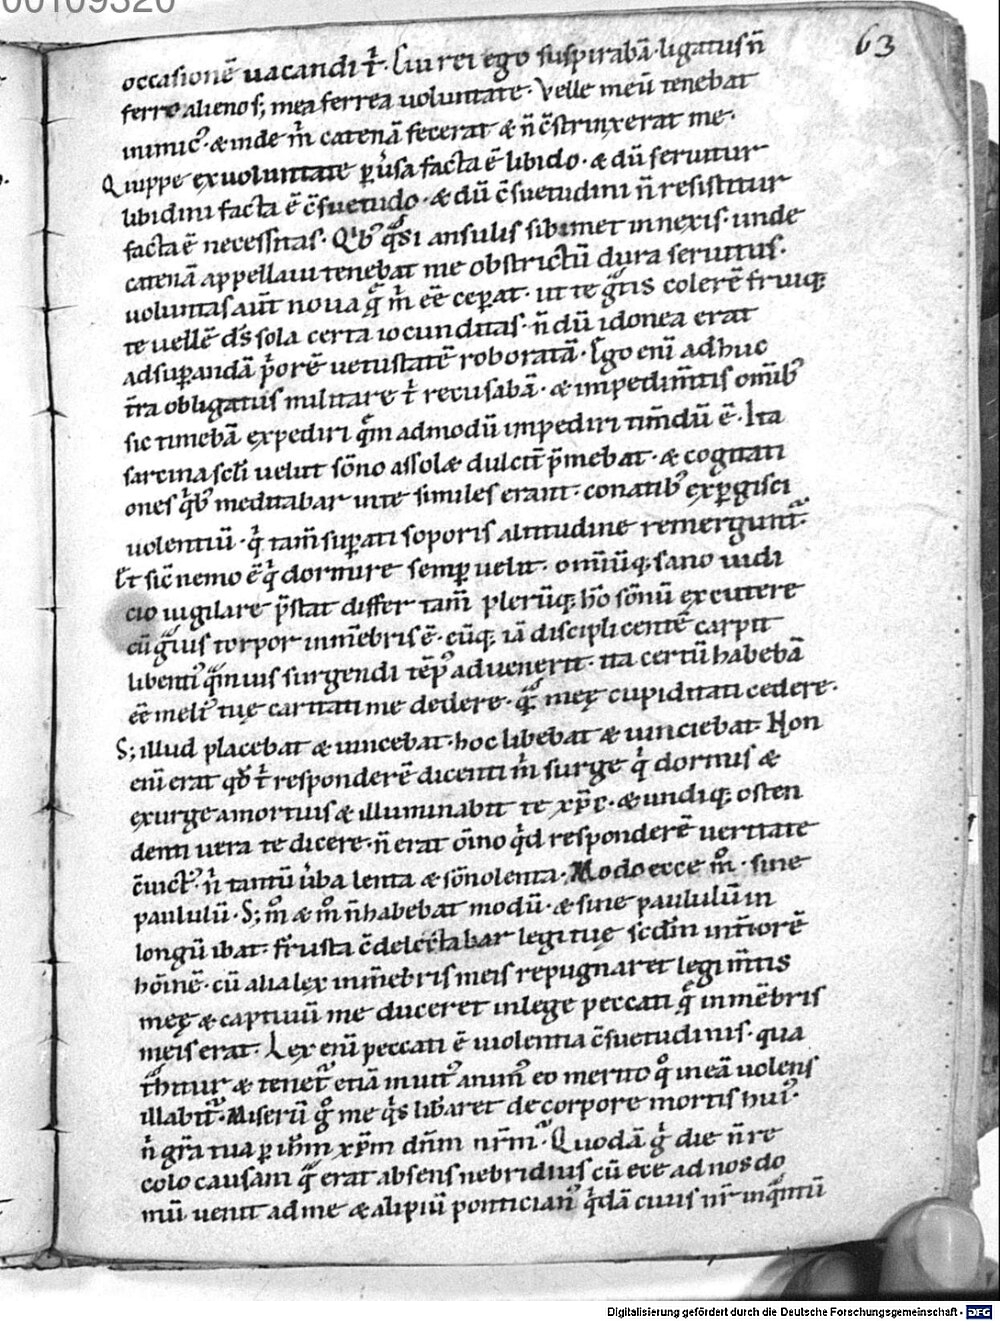 00109320
63
occasionē uacandi t̄. Cui rei ego suspirabā. ligatus n̄
ferro alieno s; mea ferrea uoluntate. Velle meū tenebat
inimic᾿. & inde m̄ catenā fecerat & n̄ c̄strinxerat me.
Quippe ex uoluntate puͥsa facta ē libido. & dū seruitur
libidini facta ē c̄suetudo. & dū c̄suetudini n̄ resistitur
facta ē necessitas. Qͥb᾿ qͣsi ansulis sibimet innexis. unde
catenā appellaui tenebat me obstrictū dura seruitus.
uoluntas aut̄ noua q̄ m̄ ēē ceperat. ut te gͣtis colerē fruiq;
te uellē ds̄ sola certa iocunditas. n̄dū idonea erat
ad supandā pͥorē uetustatē roboratā. Ego eni adhuc
t̄ra obligatus militare t̄ recusabā. & impedim̄tis om̄ib᾿
sic timebā expediri qm̄ admodū impediri tim̄dū ē. Ita
sarcina scl̄i uelut sōno assol& dulcit̄ p̄mebat. & cogitati
ones qͥb᾿ meditabar in te similes erant. conatib᾿ expgisci
uolentiū. qͥ tam̄ supati soporis altitudine remergunt᾿.
Et sic̄ nemo ē qͥ dormire semp uelit. omiūq; sano iudi
cio uigilare p̄stat differ tam̄ plerūq; hō sōnū excutere
cū gͣuis torpor in mēbris ē. eūq; iā disciplicentē carpit
libenti᾿ qͣmuis surgendi tēp᾿ aduenerit. ita certū habebā
ēē meli᾿ tuę caritati me dedere. qͣ meę cupiditati cedere.
S; illud placebat & uincebat. hoc libebat & uinciebat. Non
eni erat qd̄ t̄ responderē dicenti m̄ surge qͥ dormis &
exurge a mortuis & illuminabit te xp̄c. & undiq; osten
denti uera te dicere. n̄ erat oīno qͥd responderē ueritate
c̄uict᾿. n̄ tantū ūba lenta & sōnolenta. Modo ecce m̊. sine
paululū. S; m̊ & m̊ n̄ habebat modū. & sine paululū in
longū ibat. frusta c̄delectabar legi tuę scdm̄ int̄iorē
hōinē. cū alia lex in mēbris meis repugnaret legi m̄tis
meę & captiuū me duceret in lege peccati qͥ in mēbris
meis erat. Lex eni peccati ē uiolentia c̄suetudinis. qua
tͣhitur & tenet᾿ etiā inuit᾿ anim᾿ eo merito qͦ in eā uolens
illabit᾿. Miserū gͦ me qͥs lib̄aret de corpore mortis hui᾿.
n̄ gr̄a tua p ih̄m xp̄m dn̄m nr̄m. Quodā gͥ die n̄ re
colo causam qͣ erat absens nebridius cū ecce ad nos do
mū uenit ad me & alipiū pontician᾿ qͥdā ciuis nr̄ inqͣntū
Digitalisierung gefördert durch die Deutsche Forschungsgemeinschaft - DFG